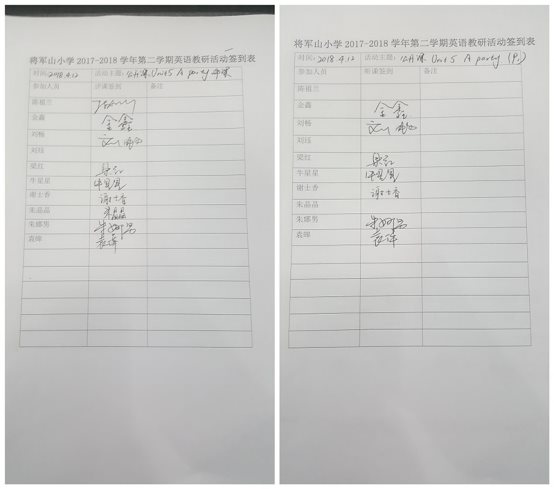 将军山小学 2017-2018 学年第二学期英语教研活动签到表
时间:2018.4.12 活动主题:公开课 Unit 5 A party 评课
参加人员 评课签到 备注
陈祖兰
金鑫 金鑫
刘畅 刘畅
刘珏
梁红 梁红
牛星星 牛星星
谢士香 谢士香
朱晶晶 朱晶晶
朱娜男 朱娜男
袁晔 袁晔
将军山小学 2017-2018 学年第二学期英语教研活动签到表
时间:2018.4.12 活动主题:公开课 Unit 5 A party (P1)
参加人员 听课签到 备注
陈祖兰
金鑫 金鑫
刘畅 刘畅
刘珏
梁红 梁红
牛星星 牛星星
谢士香 谢士香
朱晶晶
朱娜男 朱娜男
袁晔 袁晔